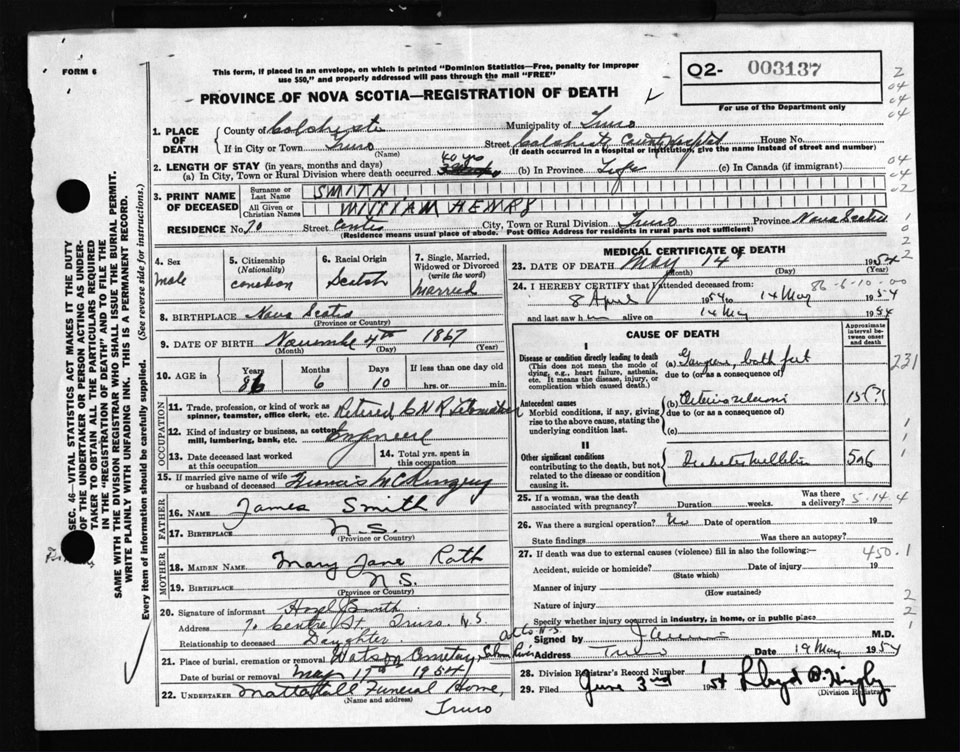 FORM 6
This form, if placed in an envelope, on which is printed "Dominion Statistics—Free, penalty for improper
use $50," and properly addressed will pass through the mail "FREE"
Q2- 003137
For use of the Department only
PROVINCE OF NOVA SCOTIA—REGISTRATION OF DEATH
SEC. 46—VITAL STATISTICS ACT MAKES IT THE DUTY
OF THE UNDERTAKER OR PERSON ACTING AS UNDER-
TAKER TO OBTAIN ALL THE PARTICULARS REQUIRED
IN THE "REGISTRATION OF DEATH" AND TO FILE THE
SAME WITH THE DIVISION REGISTRAR WHO SHALL ISSUE THE BURIAL PERMIT.
WRITE PLAINLY WITH UNFADING INK. THIS IS A PERMANENT RECORD.
Every item of information should be carefully supplied. (See reverse side for instructions.)
1. PLACE OF DEATH
County of Colchester Municipality of Truro
If in City or Town Truro (Name) Street Colchester County Hospital House No.
(If death occurred in a Hospital or Institution, give the name instead of street and number)
2. LENGTH OF STAY (in years, months and days)
(a) In City, Town or Rural Division where death occurred 40 yrs (b) In Province Life (c) In Canada (if immigrant)
3. PRINT NAME OF DECEASED
Surname or Last Name SMITH
All Given or Christian Names WILLIAM HENRY
RESIDENCE No. 70 Street Centre City, Town or Rural Division Truro Province Nova Scotia
(Residence means usual place of abode. Post Office Address for residents in rural parts not sufficient)
4. Sex
male
5. Citizenship (Nationality)
canadian
6. Racial Origin
Scotch
7. Single, Married, Widowed or Divorced (write the word)
married
8. BIRTHPLACE Nova Scotia
(Province or Country)
9. DATE OF BIRTH November 4th 1867
(Month) (Day) (Year)
10. AGE in Years 86 Months 6 Days 10 If less than one day old hrs. or min.
OCCUPATION
11. Trade, profession, or kind of work as spinner, teamster, office clerk, etc. Retired C N R Locomotive
12. Kind of industry or business, as cotton mill, lumbering, bank, etc. Engineer
13. Date deceased last worked at this occupation
14. Total yrs. spent in this occupation
15. If married give name of wife or husband of deceased
FATHER
16. NAME James Smith
17. BIRTHPLACE N.S.
(Province or Country)
MOTHER
18. MAIDEN NAME Mary Jane Rath
19. BIRTHPLACE N.S.
(Province or Country)
20. Signature of informant Hazel Smith
Address 70 Centre St. Truro N.S.
Relationship to deceased Daughter
21. Place of burial, cremation or removal Watson Cemetery, Salmon River
Date of burial or removal May 17th 1954
22. UNDERTAKER Mattatall Funeral Home,
(Name and address)
Truro
MEDICAL CERTIFICATE OF DEATH
23. DATE OF DEATH May 14 1954
(Month) (Day) (Year)
24. I HEREBY CERTIFY that I attended deceased from:
86-6-10-00
8 April 1954 to 14 May 1954
and last saw h im alive on 14 May 1954
CAUSE OF DEATH
Approximate interval between onset and death
I
Disease or condition directly leading to death
(This does not mean the mode of dying, e.g., heart failure, asthenia, etc. It means the disease, injury, or complication which caused death.)
(a) Gangrene, both feet
due to (or as a consequence of)
231
Antecedent causes
Morbid conditions, if any, giving rise to the above cause, stating the underlying condition last.
(b) Arteriosclerosis 15 (?)
due to (or as a consequence of)
(c)
II
Other significant conditions
contributing to the death, but not related to the disease or condition causing it.
Diabetes Mellitus 5 or 6
25. If a woman, was the death associated with pregnancy? Duration weeks. Was there a delivery?
5-14-4
26. Was there a surgical operation? No Date of operation 19
State findings Was there an autopsy?
450.1
27. If death was due to external causes (violence) fill in also the following:—
Accident, suicide or homicide? Date of injury 19
(State which)
Manner of injury
(How sustained)
Nature of injury
Specify whether injury occurred in industry, in home, or in public place
Signed by M.D.
Address Truro Date 19 May 1954
28. Division Registrar's Record Number
29. Filed June 3rd 1954
(Division Registrar)